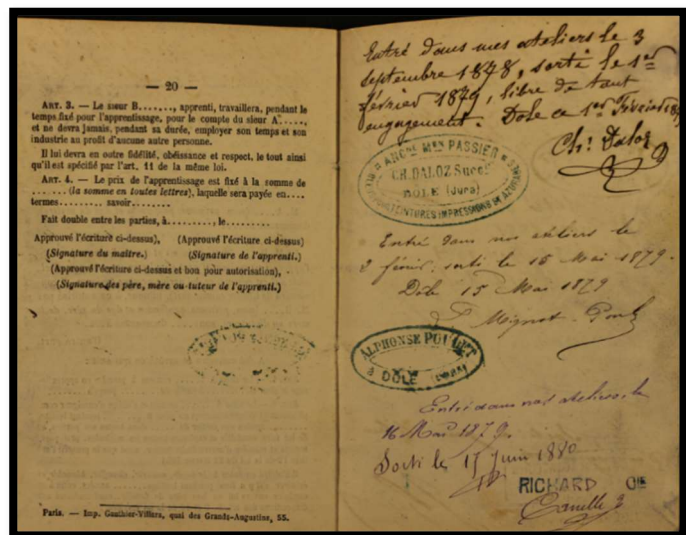 — 20 —
ART. 3. — Le sieur B......., apprenti, travaillera, pendant le
temps fixé pour l'apprentissage, pour le compte du sieur A.....,
et ne devra jamais, pendant sa durée, employer son temps et son
industrie au profit d'aucune autre personne.
Il lui devra en outre fidélité, obéissance et respect, le tout ainsi
qu'il est spécifié par l'art. 11 de la même loi.
ART. 4. — Le prix de l'apprentissage est fixé à la somme de
....... (la somme en toutes lettres), laquelle sera payée en....
termes......... savoir.........
Fait double entre les parties, à......... le.........
Approuvé l'écriture ci-dessus), (Approuvé l'écriture ci-dessus)
(Signature du maître.) (Signature de l'apprenti.)
(Approuvé l'écriture ci-dessus et bon pour autorisation),
(Signature des père, mère ou tuteur de l'apprenti.)
Paris. — Imp. Gauthier-Villars, quai des Grands-Augustins, 55.
Entré dans mes ateliers le 3
septembre 1878, sorti le 1er
février 1879, libre de tout
engagement. Dole ce 1er Février 1879
Ch. Daloz
ANCne Mon PASSIER
CH. DALOZ Succr
DOLE (Jura)
TEINTURES IMPRESSIONS
Entré dans nos ateliers le
février. sorti le 15 Mai 1879.
Dole 15 Mai 1879
Mignot
ALPHONSE
à DOLE (JURA)
Entré dans nos ateliers le
16 Mai 1879.
Sorti le 15 Juin 1880
RICHARD CIE
Camille